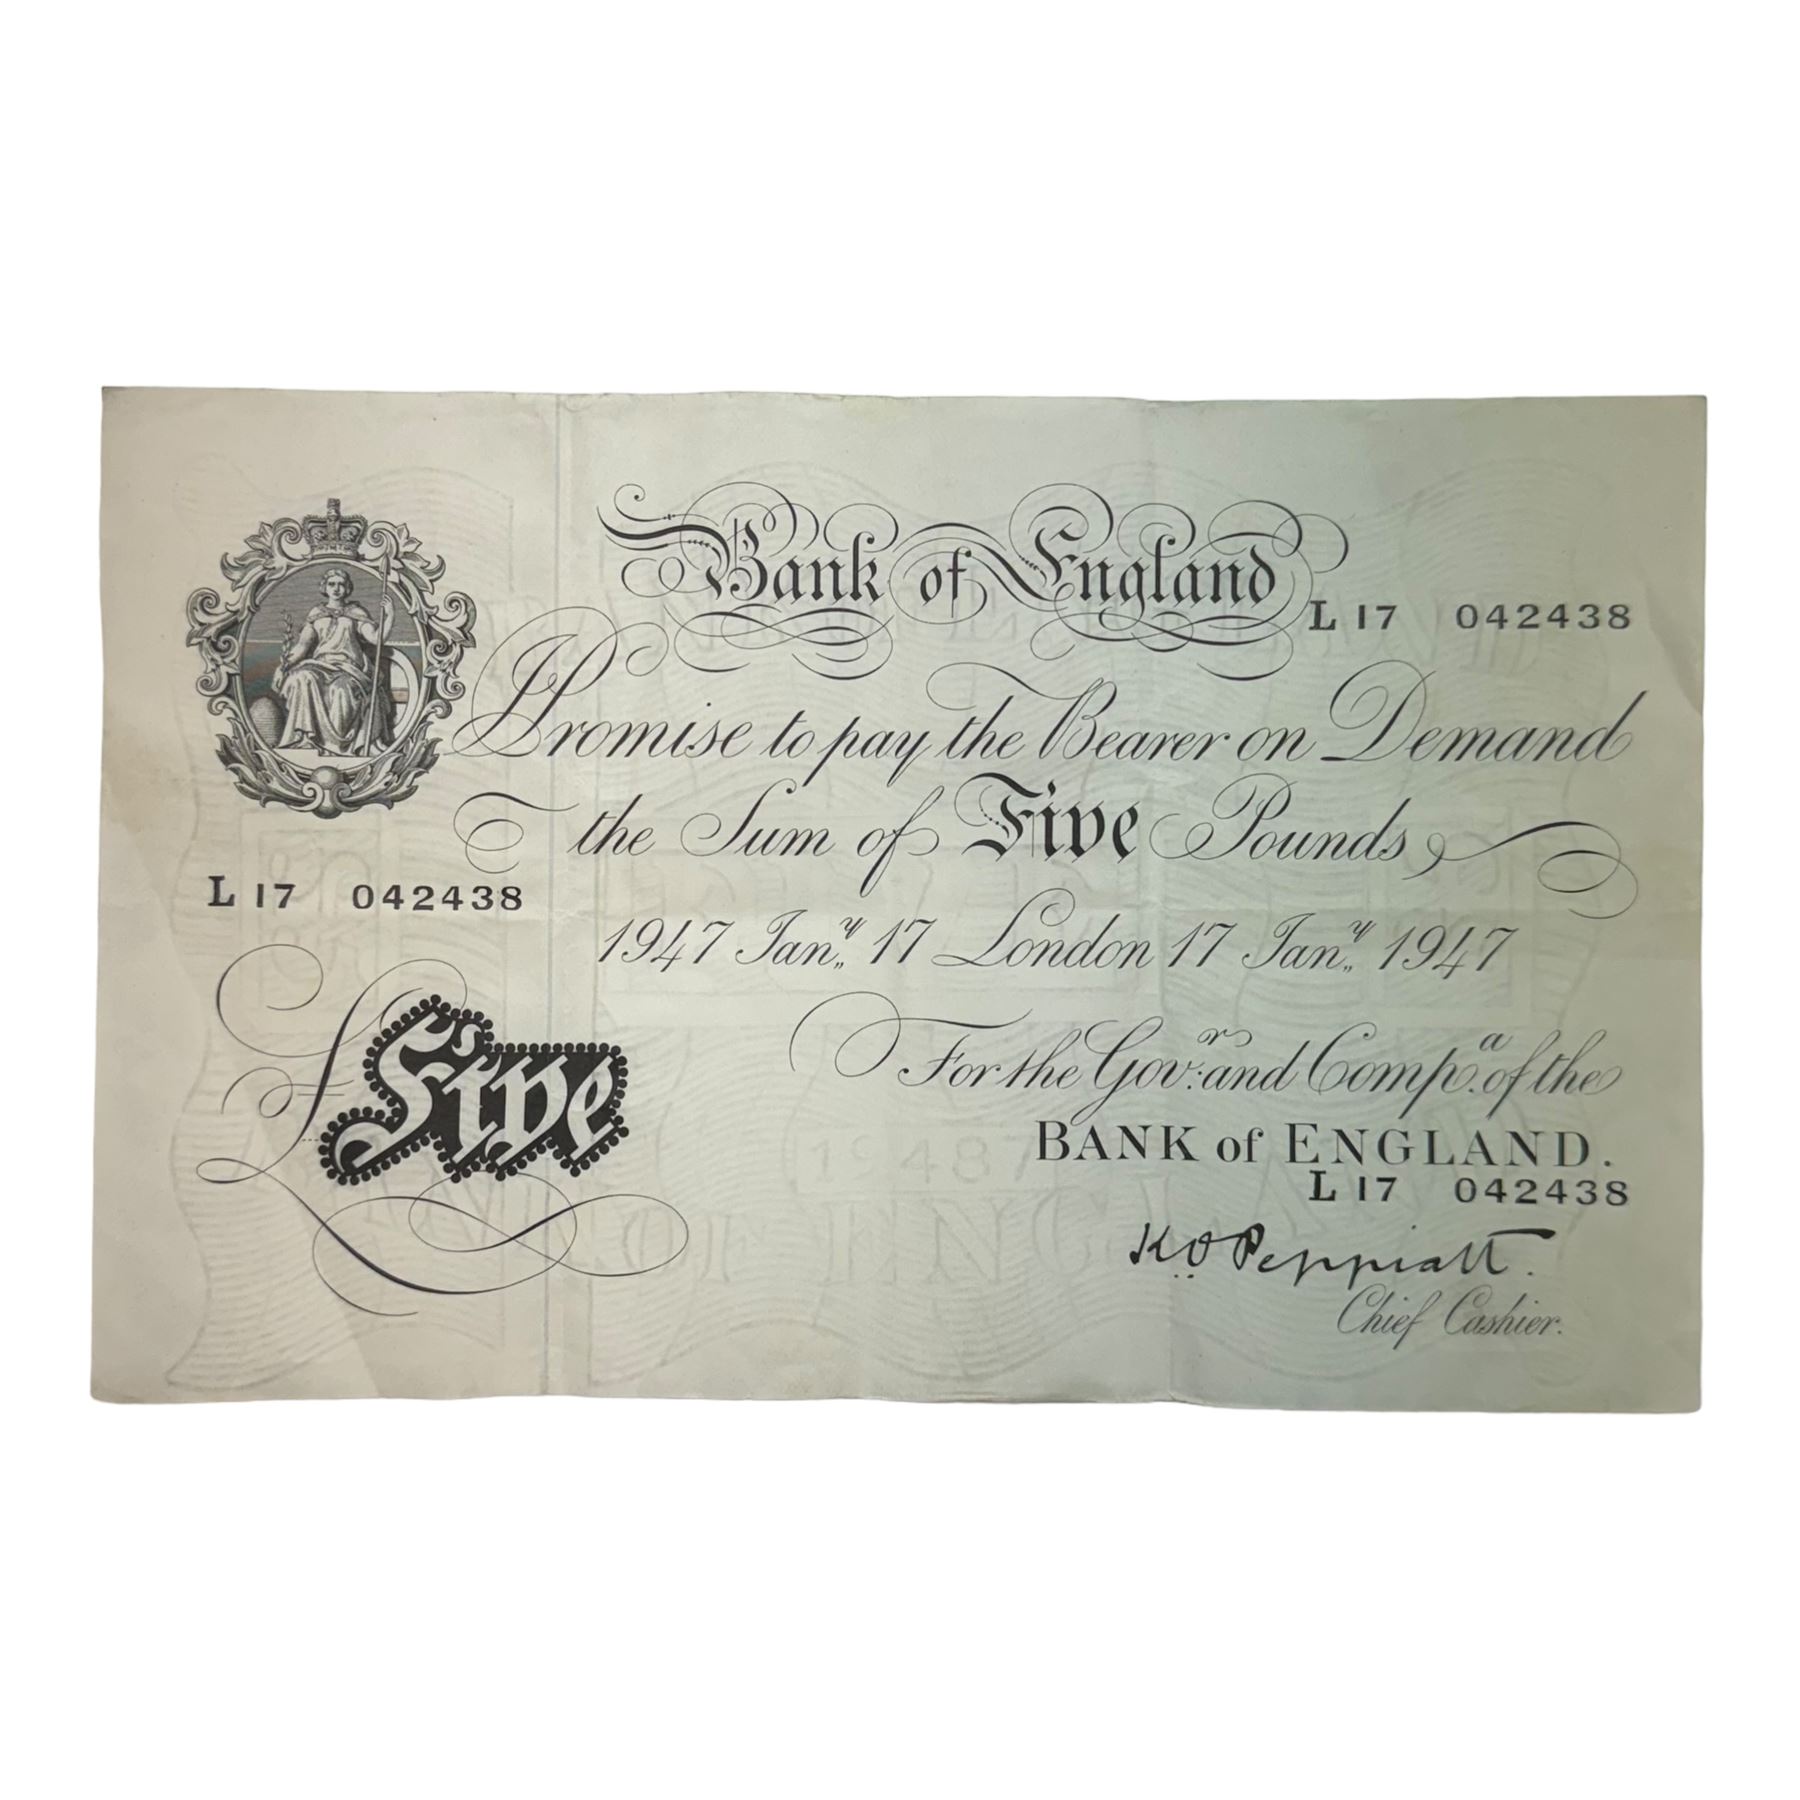 Bank of England
L 17 042438
I Promise to pay the Bearer on Demand
the Sum of Five Pounds
L 17 042438
1947 Jan.y 17 London 17 Jan.y 1947
£ Five
For the Gov.r and Comp.a of the
BANK of ENGLAND.
L 17 042438
K.O. Peppiatt.
Chief Cashier.